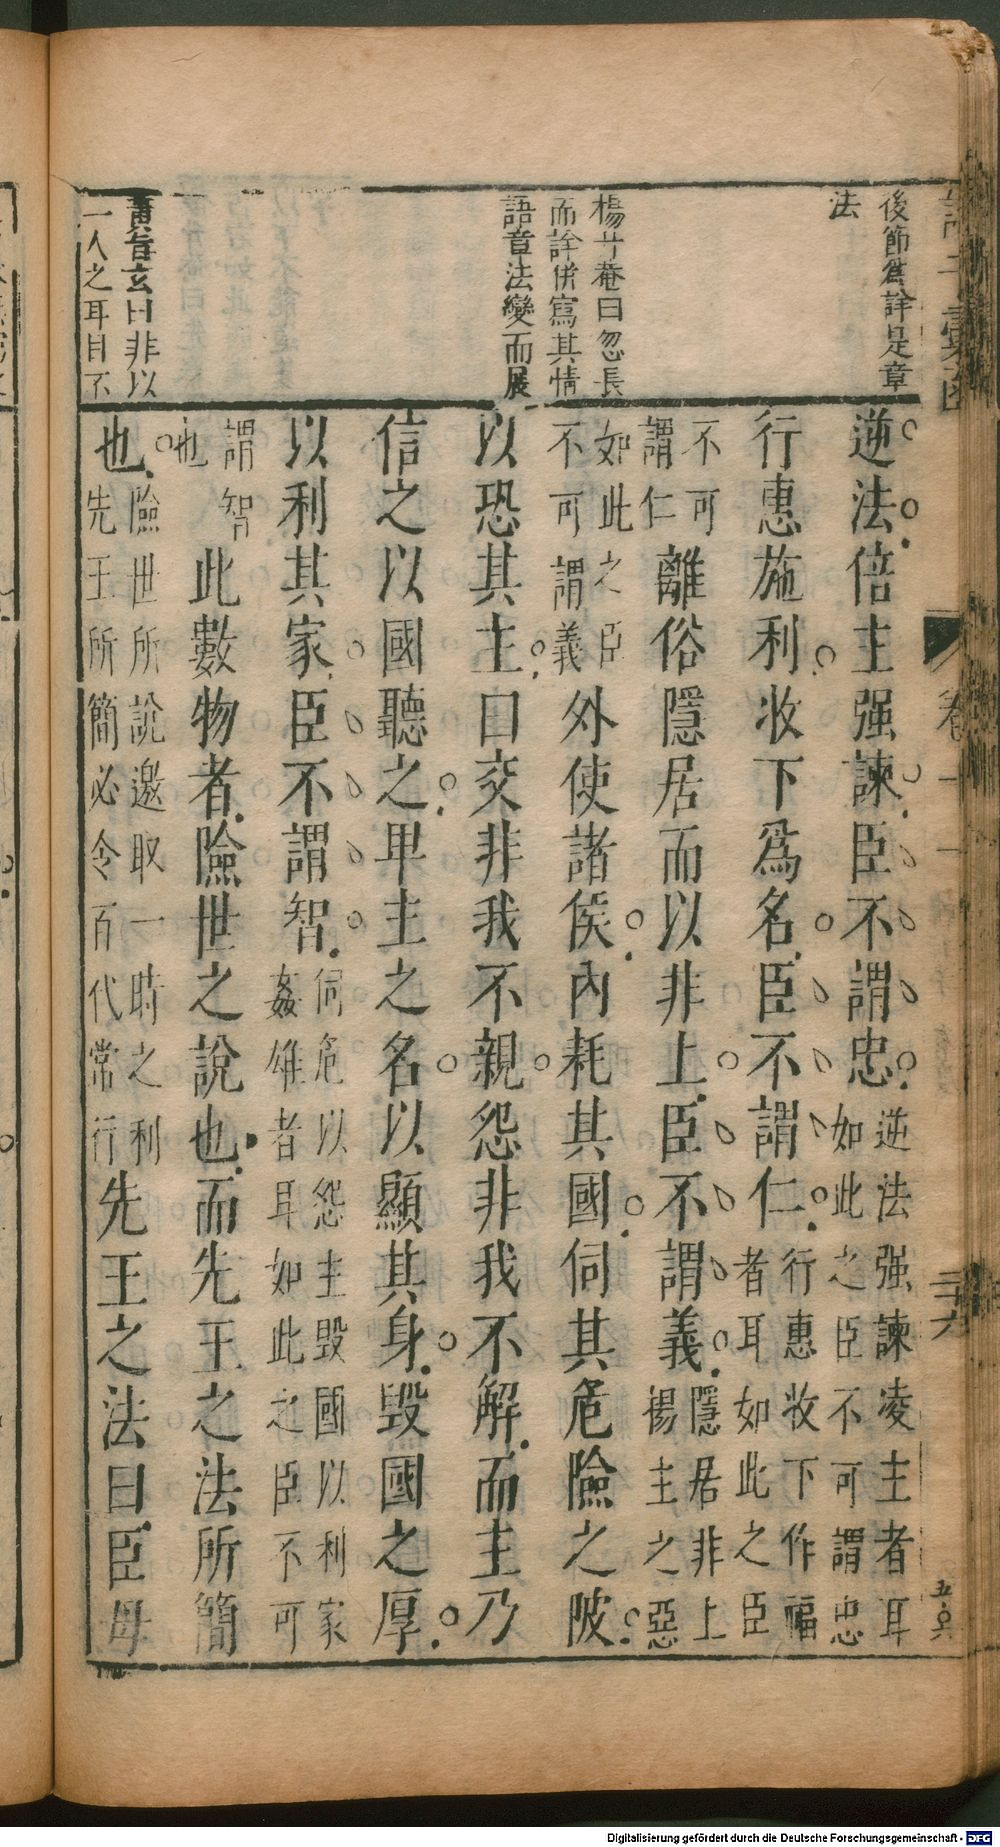 後節爲詮是章
法
楊升菴曰忽長
而詮倂寫其情
語章法變而展
黄旨玄曰非以
一人之耳目不
逆法倍主强諫臣不謂忠
逆法强諫凌主者耳
如此之臣不可謂忠
行惠施利收下爲名臣不謂仁
行惠收下作福
者耳如此之臣
不可
謂仁
離俗隱居而以非上臣不謂義
隱居非上
揚主之惡
如此之臣
不可謂義
外使諸侯內耗其國伺其危險之陂
以恐其主曰交非我不親怨非我不解而主乃
信之以國聽之卑主之名以顯其身毀國之厚
以利其家臣不謂智
伺危以怨主毀國以利家
姦雄者耳如此之臣不可
謂智
也
此數物者險世之說也而先王之法所簡
也
險世所說邀取一時之利
先王所簡必令百代常行
先王之法曰臣毋
卷十一
三十六
五
Digitalisierung gefördert durch die Deutsche Forschungsgemeinschaft - DFG